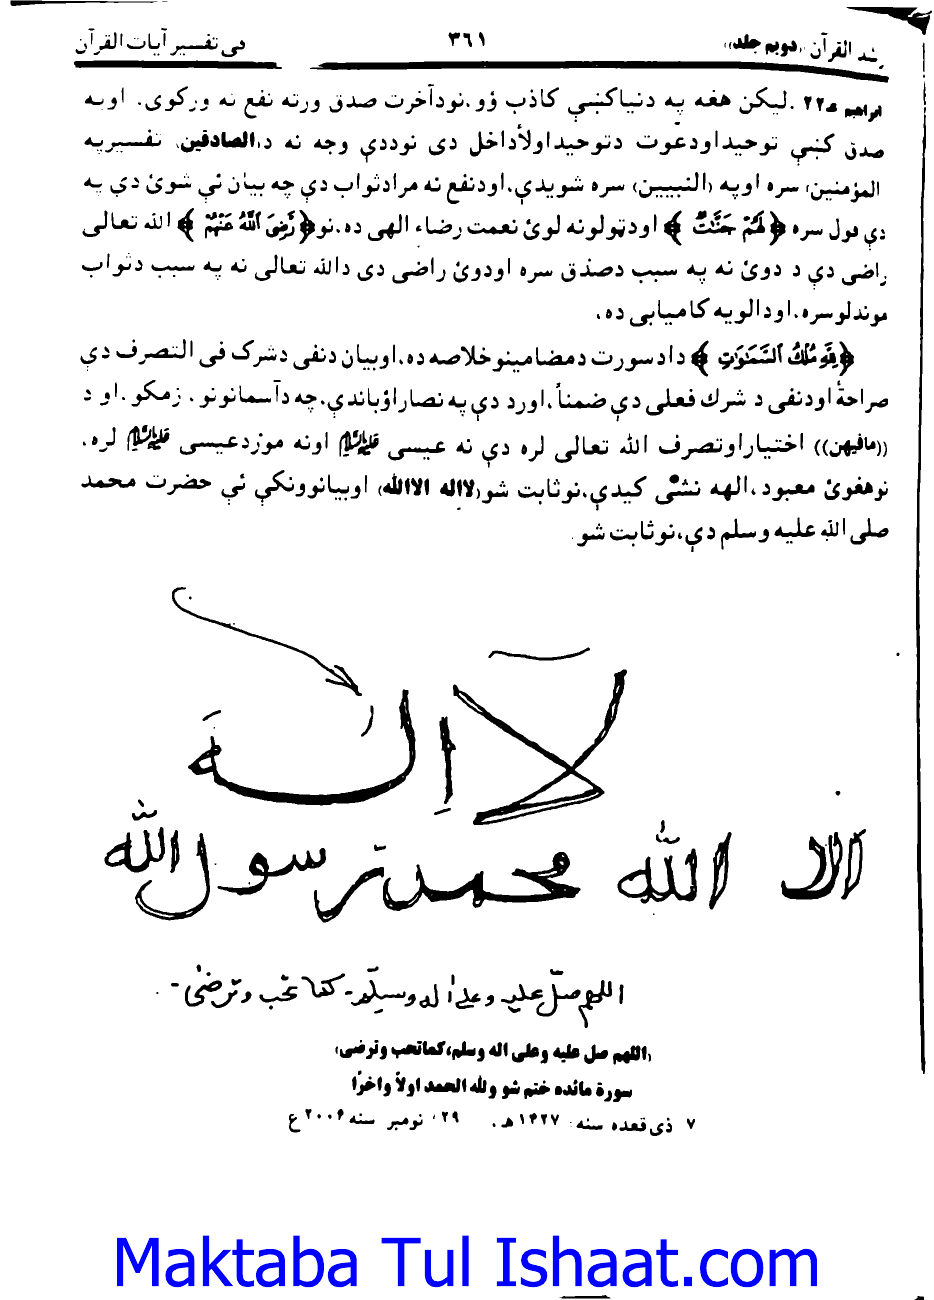 رشد القرآن ((دويم جلد)) ٣٦١ فى تفسير آيات القرآن
ابراهيم ٢٢ .ليكن هغه په دنياكښې كاذب ؤو،نودآخرت صدق ورته نفع نه وركوى. اوپه
صدق كښې توحيداودعوت دتوحيداولأداخل دى نوددې وجه نه د(الصادقين) تفسيرپه
المؤمنين) سره اوپه (النبيين) سره شويدې،اودنفع نه مرادثواب دې چه بيان ئې شوئ دې په
دې قول سره ﴿لَهُمْ جَنَّتٌ﴾ اودټولونه لوئ نعمت رضاء الهى ده،نو﴿رَّضِىَ اللَّهُ عَنْهُمْ﴾ الله تعالى
راضى دې د دوئ نه په سبب دصدق سره اودوئ راضى دى دالله تعالى نه په سبب دثواب
موندلوسره،اودالويه كاميابى ده،
﴿لِلَّهِ مُلْكُ السَّمَٰوَٰتِ﴾ دادسورت دمضامينوخلاصه ده،اوبيان دنفى دشرك فى التصرف دې
صراحةً اودنفى د شرك فعلى دې ضمناً،اورد دې په نصاراؤباندې،چه دآسمانونو، زمكو،او د
((مافيهن)) اختياراوتصرف الله تعالى لره دې نه عيسى عليه السلام اونه موردعيسى عليه السلام لره،
نوهغوئ معبود،الهه نشى كيدې،نوثابت شو(لااله الاالله) اوبيانوونكې ئې حضرت محمد
صلى الله عليه وسلم دې،نوثابت شو
لآ اِلٰه
الا الله محمد رسول الله
اللهم صلّ عليه وعلى اله وسلّم - كما تحب وترضى -
(اللهم صل عليه وعلى اله وسلم،كماتحب وترضى)
سورة مائده ختم شو ولله الحمد اولاً واخرًا
٧ ذى قعده سنه: ١٤٢٧ هـ، ٢٩، نومبر سنه ٢٠٠٦ ع
Maktaba Tul Ishaat.com